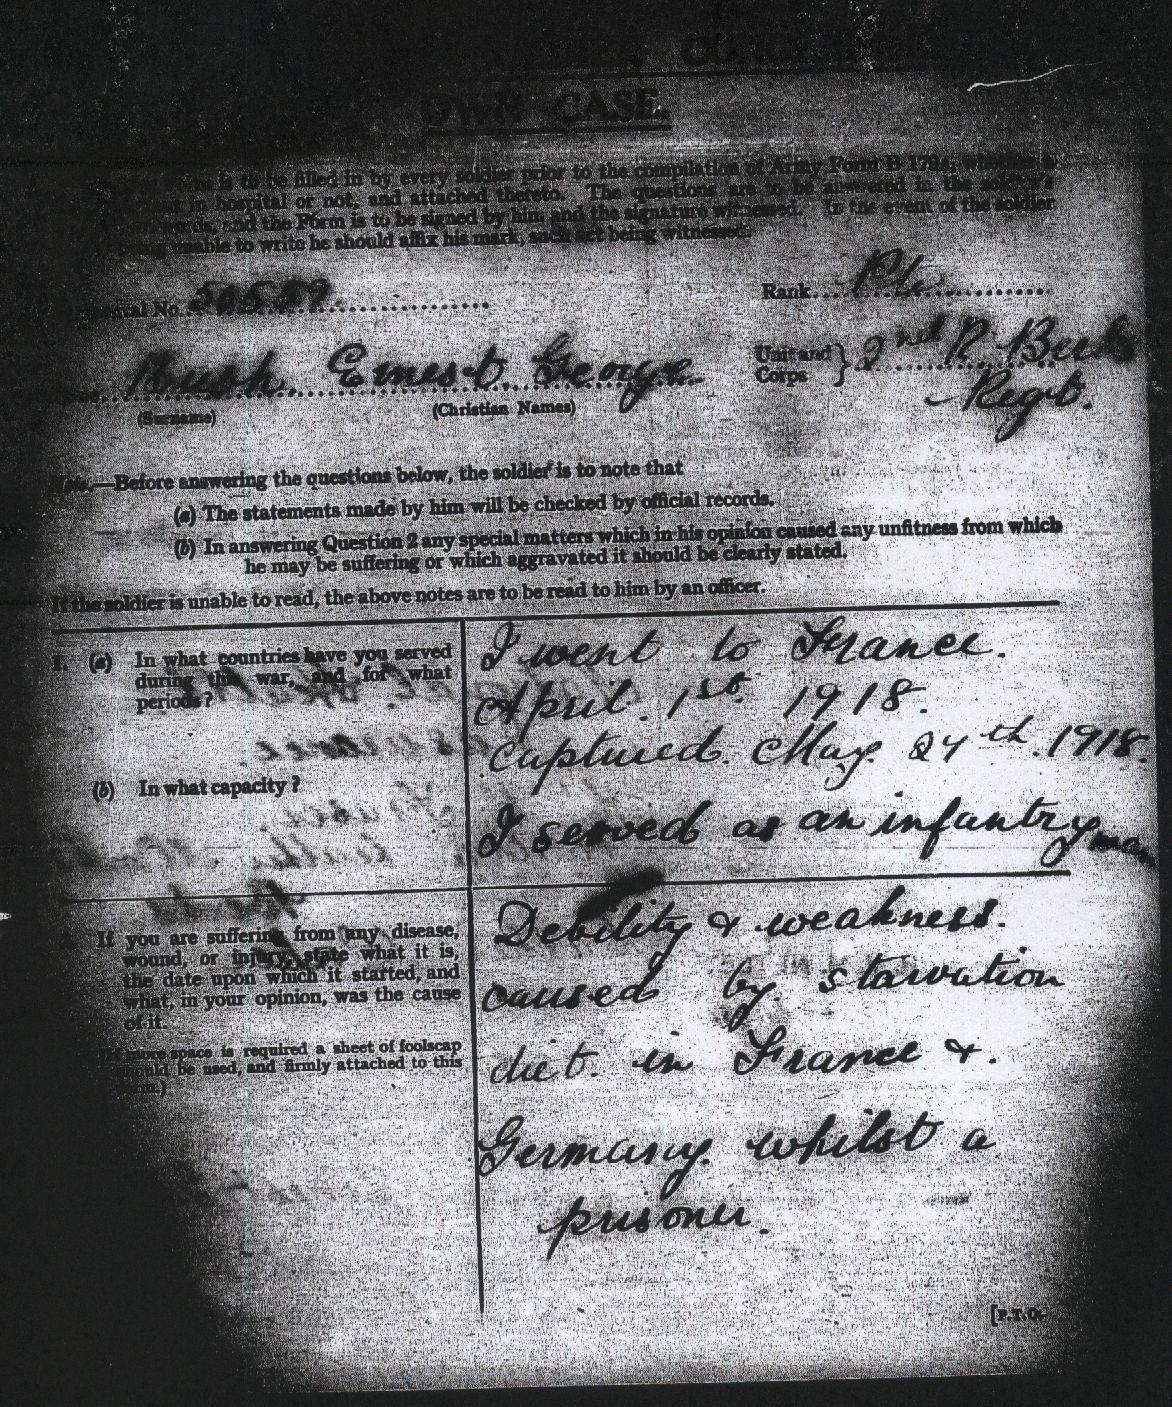 OWN CASE.
is to be filled in by every soldier prior to the compilation of Army Form B 179A, whether a
in hospital or not, and attached thereto. The questions are to be answered in the soldier's
words, and the Form is to be signed by him and the signature witnessed. In the event of the soldier
unable to write he should affix his mark, such act being witnessed.
No. 50589 Rank Pte
Rush Ernest George Unit and Corps } 2nd R Berks Regt.
(Surname) (Christian Names)
Note.—Before answering the questions below, the soldier is to note that
(a) The statements made by him will be checked by official records.
(b) In answering Question 2 any special matters which in his opinion caused any unfitness from which
he may be suffering or which aggravated it should be clearly stated.
If the soldier is unable to read, the above notes are to be read to him by an officer.
1. (a) In what countries have you served
during this war, and for what
periods?
I went to France.
April 1st 1918.
Captured. May 27th. 1918.
(b) In what capacity?
I served as an infantry man
If you are suffering from any disease,
wound, or injury, state what it is,
the date upon which it started, and
what, in your opinion, was the cause
of it.
(If more space is required a sheet of foolscap
should be used, and firmly attached to this
form.)
Debility & weakness.
caused by starvation
diet. in France &.
Germany. whilst a
prisoner.
[P.T.O.